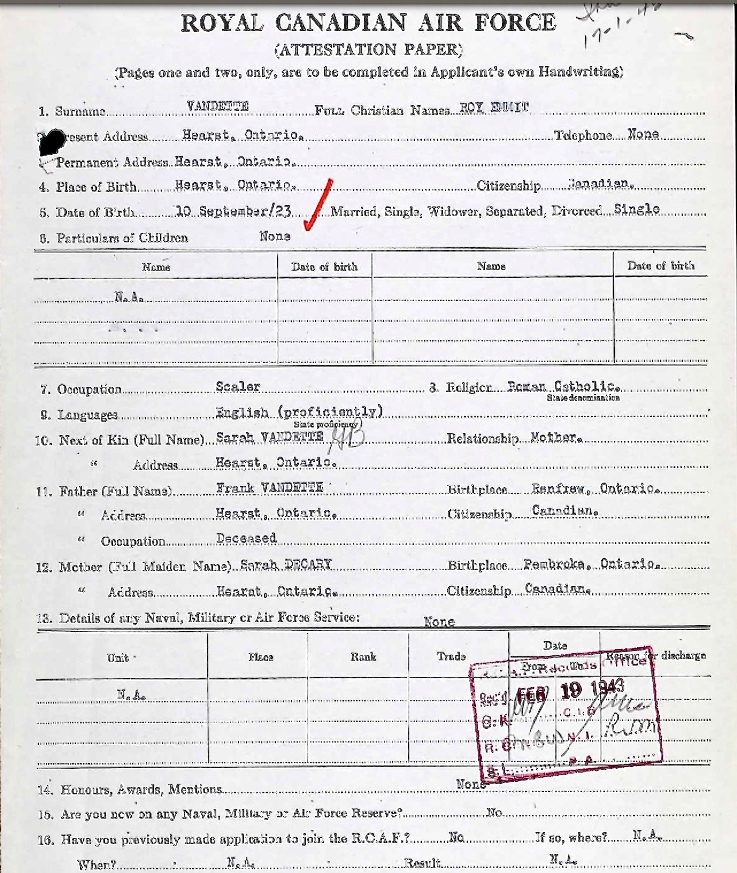 ROYAL CANADIAN AIR FORCE
17-1-43
(ATTESTATION PAPER)
(Pages one and two, only, are to be completed in Applicant's own Handwriting)
1. Surname VANDETTE Full Christian Names ROY EMMIT
Present Address Hearst, Ontario. Telephone None
Permanent Address Hearst, Ontario.
4. Place of Birth Hearst, Ontario. Citizenship Canadian.
5. Date of Birth 10 September/23 Married, Single, Widower, Separated, Divorced Single
6. Particulars of Children None
Name Date of birth Name Date of birth
N.A.
7. Occupation Scaler 8. Religion Roman Catholic.
State denomination
9. Languages English (proficiently)
State proficiency)
10. Next of Kin (Full Name) Sarah VANDETTE Relationship Mother.
" Address Hearst, Ontario.
11. Father (Full Name) Frank VANDETTE Birthplace Renfrew, Ontario.
" Address Hearst, Ontario. Citizenship Canadian.
" Occupation Deceased
12. Mother (Full Maiden Name) Sarah DECARY Birthplace Pembroke, Ontario.
" Address Hearst, Ontario. Citizenship Canadian.
13. Details of any Naval, Military or Air Force Service: None
Unit Place Rank Trade Date Reason for discharge
From
Records Office
N.A.
Rec'd FEB 19 1943
C.I.B
N.I.
14. Honours, Awards, Mentions None
15. Are you now on any Naval, Military or Air Force Reserve? No
16. Have you previously made application to join the R.C.A.F.? No If so, where? N.A.
When? N.A. Result N.A.